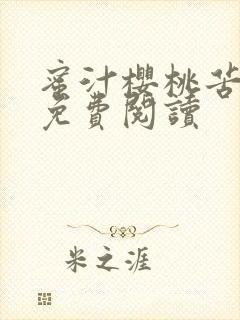 蜜汁櫻桃苦
免費閱讀
米之涯